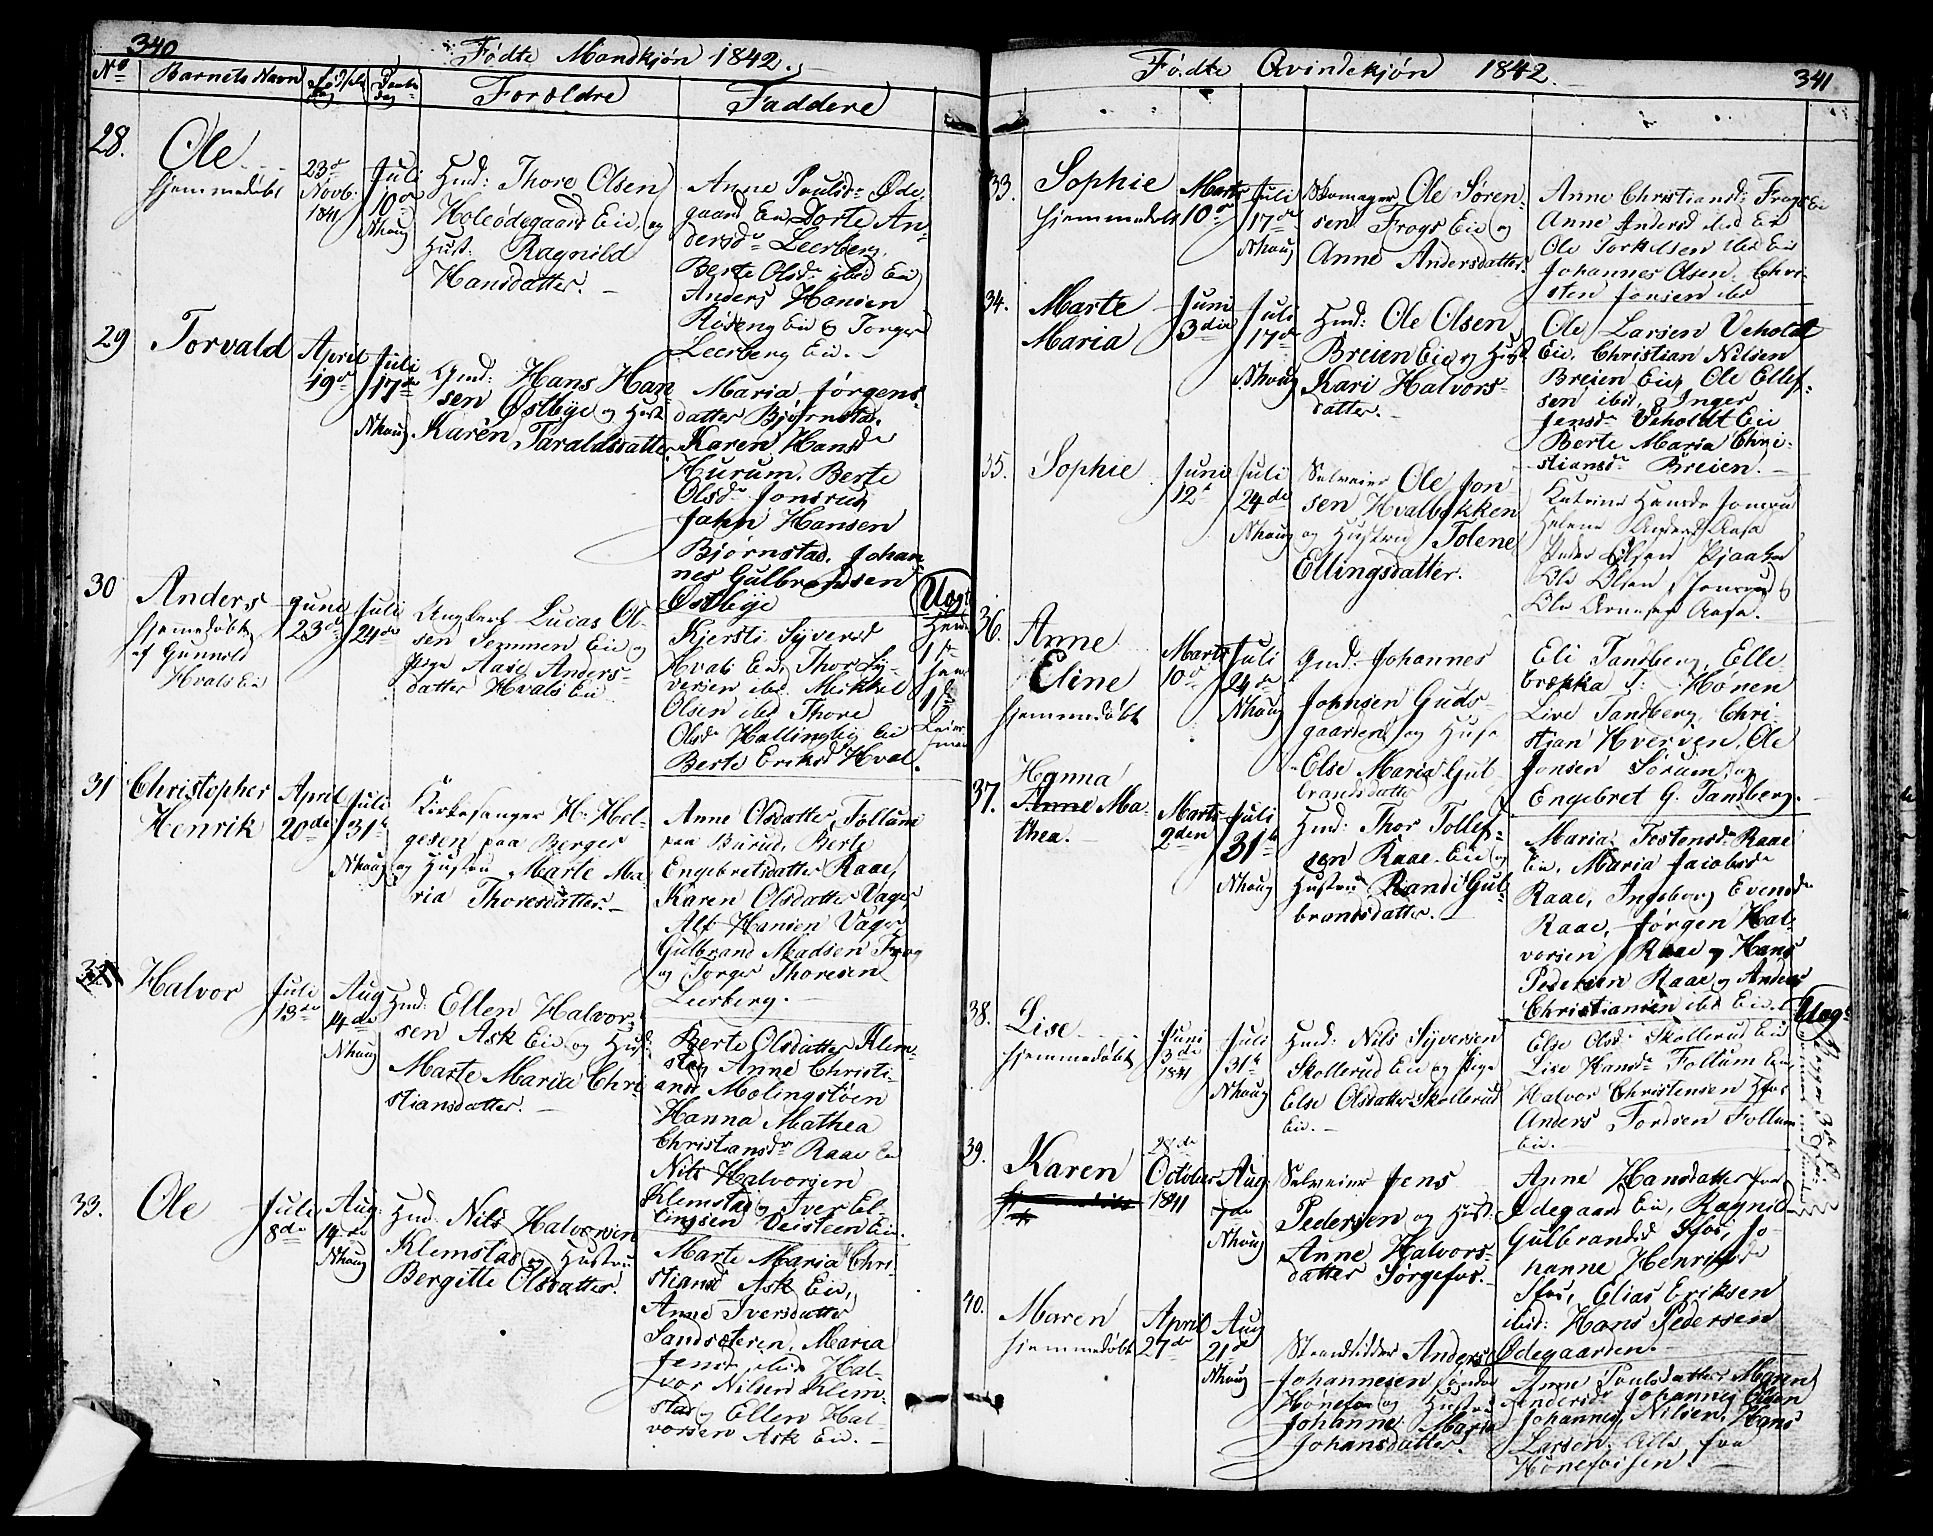 340
Fødte Mandkjøn 1842.
No
Barnets Navn
Forældre
Faddere
28.
Ole
hjemmedøbt
23de
Novb:
1841
Juli
10de
Nhoug
Hmd: Thore Olsen
Holeødegaards Eie, og
Hust: Ragnild
Hansdatter.
Anne Poulsdr Øde
gaard Eie Dorte An-
dersdr Leerberg,
Berte Olsdr ibid Eie
Anders Hansen
Røseng Eie og Torger
Leerberg Eie.
29
Torvald
April
19de
Juli
17de
Nhoug
Gmd: Hans Han
sen Østbye og Hust
Karen Taraldsdatter
Maria Jørgens-
datter Bjørnstad,
Karen Hansdr
Hurum, Berte
Olsdr Jonsrud
John Hansen
Bjørnstad, Johan
nes Gulbrandsen
Østbye
30
Anders
hjemmedøbt
af Gunnild
Hvals Eie
Juni
23de
Juli
24de
Ungkarl Lucas Ol-
sen Semmen Eie og
Pige Aase Anders-
datter Hvals Eie
Kjersti Syversd
Hvals Eie, Thor Sy-
versen ibd. Mikkel
Olsen ibd Thore
Olsdr Hallingby Eie
Berte Eriksd Hval.
Uægt
31
Christopher
Henrik
April
20de
Juli
31te
Nhoug
Kirkesanger H. Hel-
gesen paa Berger
og Hustru Marte Ma-
ria Thoresdatter.
Anne Olsdatter Follum
paa Burud, Berte
Engebretsdatter Raae,
Karen Olsdatter Vager
Alf Hansen Vager
Gulbrand Madsen Frog
og Torger Thoresen
Leerberg.
Halvor
Juli
13de
Aug
14de
Nhoug
Hmd: Ellen Halvor-
sen Ask Eie og Hust
Marte Maria Chri
stiansdatter.
Berte Olsdatter Klem-
stad, Anne Christi-
ansd Mølingstøen
Hanna Mathea
Christiansdr Raae Eie
Nils Halvorsen
Klemstad og Iver El-
lingsen Veisteen Eie.
33.
Ole
Juli
8de
Aug
14de
Nhoug
Hmd: Nils Halvorsen
Klemstad og Hustru
Bergitte Olsdatter.
Marte Maria Chri-
stiansd Ask Eie,
Anne Iversdatter
Sandsæteren, Maria
Jensdr ibid Hal-
vor Nilsen Klem-
stad og Ellen Hal-
vorsen Ask Eie.
Fødte Qvindekjøn 1842
341
33.
Sophie
hjemmedøbt
Marts
10de
Juli
17de
Nhoug
Skomager Ole Sören-
sen Frogs Eie og
Anne Andersdatter
Anne Christiansd: Frogs Eie
Anne Andersd ibid Eie
Ole Torkelsen ibd Eie
Johannes Olsen, Chri-
sten Jonsen ibd
34.
Marte
Maria
Juni
3die
Juli
17de
Nhoug
Hmd: Ole Olsen
Breien Eie og Hust
Kari Halvors-
datter.
Ole Larsen Veholdt
Eie, Christian Nilsen
Breien Eie, Ole Ellef-
sen ibid, Inger
Jensdr Veholdt Eie
Berte Maria Chri-
stiansdr Breien.
35.
Sophie
Juni
12te
Juli
24de
Nhoug
Selveier Ole Jon
sen Hvalbykken
og Hustru Tolene
Ellingsdatter.
Helene Andersd Aasa
Peder Olsen
Ole Olsen Jonsrud
Ole Arnesen Aasa.
36.
Anne
Eline
hjemmedøbt
Marts
10de
Juli
24de
Nhoug
Gmd: Johannes
Johnsen Guds-
gaarden og Hust
Else Maria Gul
brandsdatter
Eli Tandberg, Elle-
Live Tandberg, Chri-
stian Hverven, Ole
Jonsen Sørum og
Engebret G. Tandberg.
37.
Hanna
Anne Ma-
thea.
Marts
2den
Juli
31te
Nhoug
Hmd: Thor Tollef-
sen Raae Eie og
Hustru Randi Gul-
brandsdatter.
Maria Tostensdr Raae
Eie, Maria Jacobsdr
Raae, Ingeborg Evensdr
Raae, Jørgen Hal-
vorsen Raae og Hans
Pedersen Raae, og Anders
Christiansen ibd Eie.
38.
Lise
hjemmedøbt
Juni
3die
1841
Juli
31te
Nhoug
Hmd: Nils Syversen
Skollerud Eie og Pige
Else Olsdatter Skollerud
Eie.
Else Olsd: Skollerud Eie
Lise Hansdr Follum Eie
Halvor Christensen Hfos
Anders Tordsen Follum
Eie.
Uægt
39.
Karen
October
1841
Aug
7de
Nhoug
Selveier Jens
Pedersen og Hust:
Anne Halvors-
datter Sørgefos.
Anne Hansdatter
Ødegaard Eie, Ragnild
Gulbrandsd Hfos, Jo-
hanne Henriksdr
Hfos, Elias Eriksen
ibid: Hans Pedersen
Ødegaarden.
40.
Maren
hjemmedøbt
April
27de
Aug
21de
Nhoug
Strandsidder Anders
Johannesen Søndre
Hønefos og Hustru
Johanne Maria
Johansdatter.
Anne Poulsdatter, Maren
Andersdr Johannes Olsen
Johannes Nilsen, Hans
Larsen, Alle fra
Hønefossen.